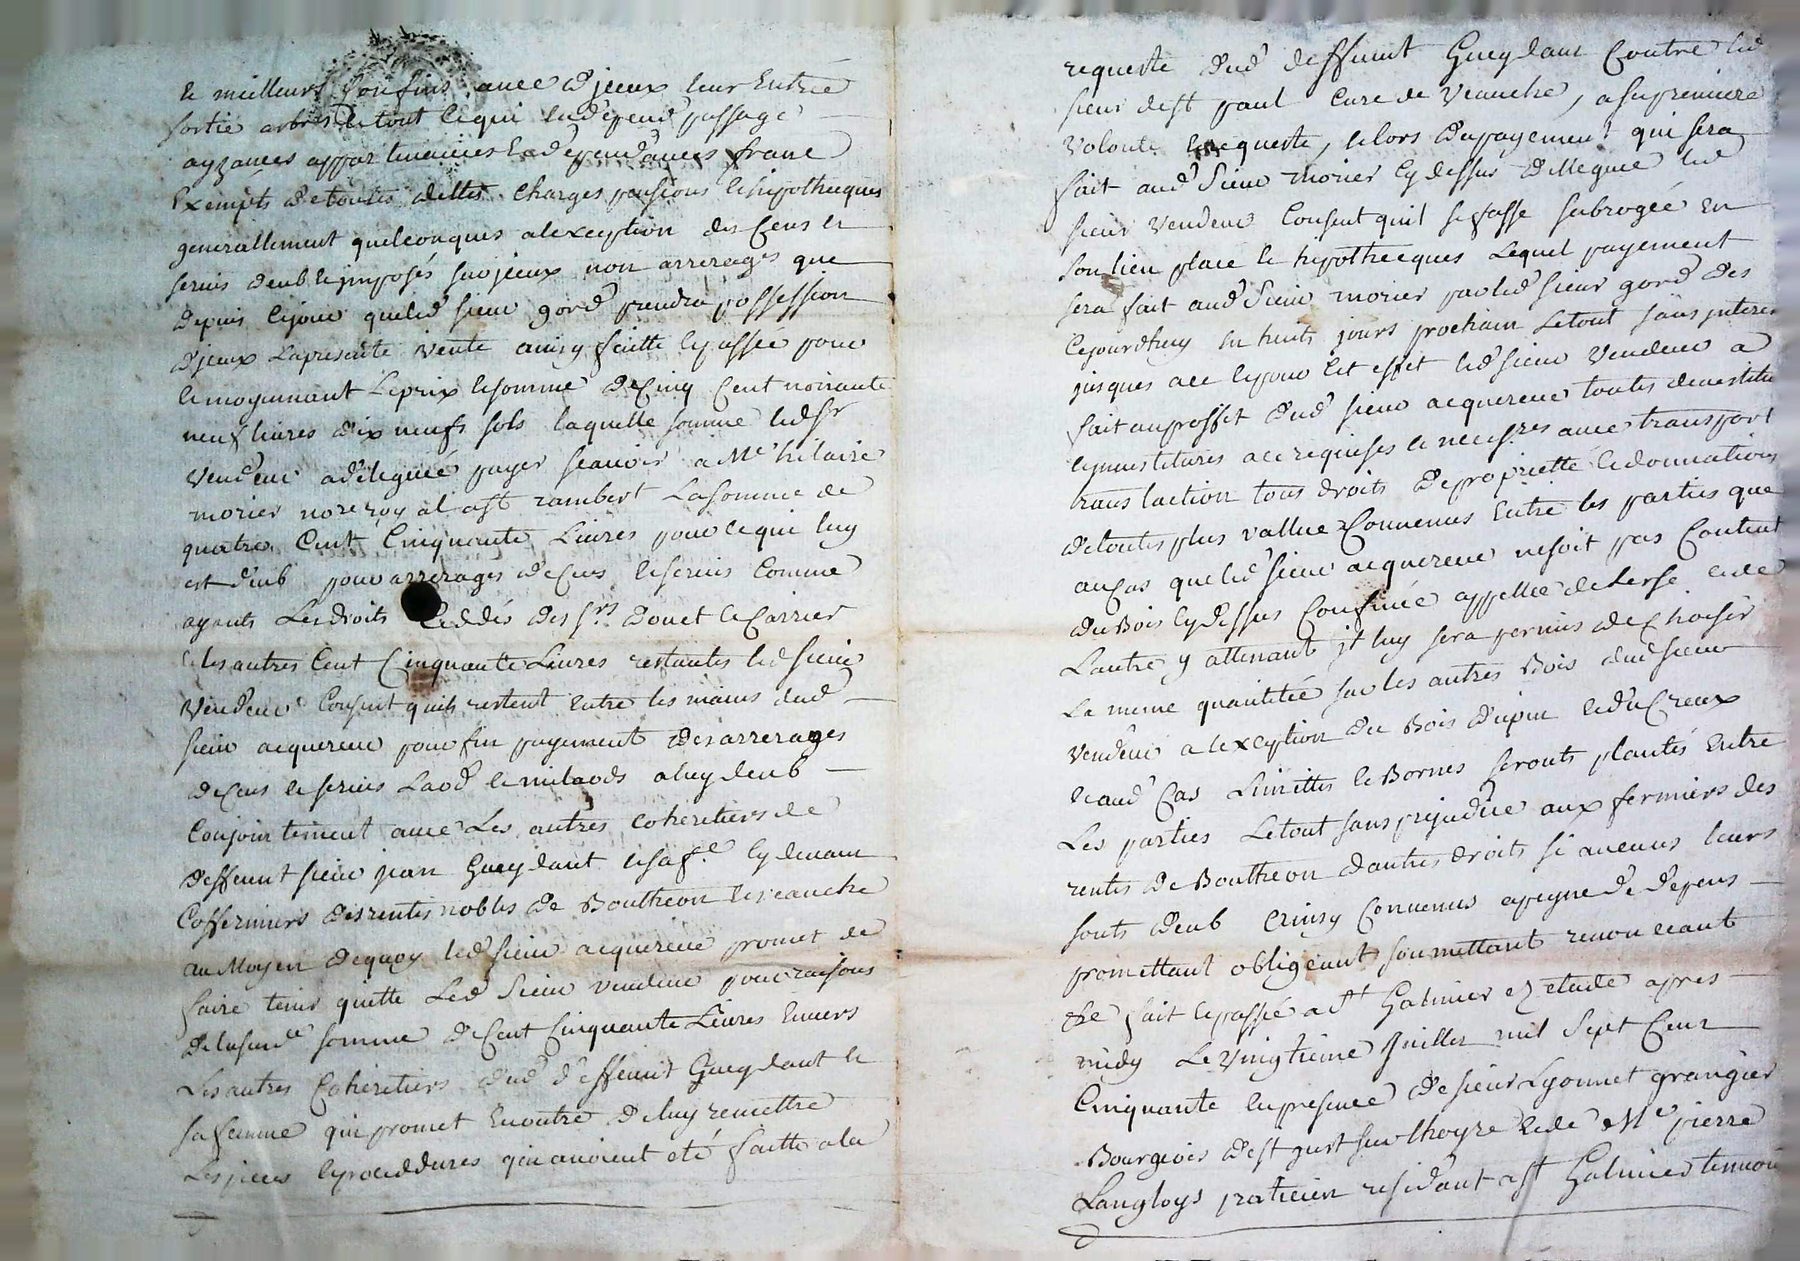 et meilleurs Confins avec d'jceux leur Entrée
sortie arbres et tout ce qui en depend passage
ayzances appartenances et dependances franc
Exempts de toutes dettes charges pensions et hipotheques
generallement quelconques a l'exception des Cens et
servis deub et jmposés sur jceux non arrerages que
depuis ce jour que led sieur gord prendra possession
d'jceux La presente vente ainsy faitte et passée pour
et moyennant Le prix et somme de Cinq Cent nonante
neuf livres dix neufs sols laquelle somme led sr
Vendeur a délégué payer sçauoir a Me hilaire
morier nore royal a st rambert La somme de
quatre Cent Cinquante Livres pour ce qui luy
est deub pour arrerages de Cens et servis Comme
ayants Les droits Ceddés des srs Douet et Carrier
et les autres Cent Cinquante Livres restantes led sieur
Vendeur Consent qu'ils restent Entre les mains dud
sieur acquereur pour fin payement des arrerages
de Cens et servis Laod et milaods a luy deub
Conjointement avec Les autres coheretiers de
deffeunt sieur jean Gueydant et sa fe Cy devant
Cofermiers des rentes nobles de Boutheon et veauche
au Moyen de quoy led sieur acquereur promet de
faire tenir quitte Led Sieur vendeur pour raisons
de la susde somme de Cent Cinquante Livres Envers
Les autres Coheretiers dud deffeunt Gueydant et
sa femme qui promet Encontre de luy remettre
Les pieces et proceddures qui avoient eté faitte a la
requeste dud deffunt Gueydant Contre led
sieur de st paul Curé de Veauche, a sa premiere
Volonté et requeste, et lors du payement qui sera
fait aud Sieur morier Cy dessus dellegué led
sieur Vendeur Consent qu'il se fasse subrogée En
son lieu place et hipotheques Lequel payement
sera fait aud Sieur morier par led sieur gord des
Cejourdhuy En huits jours prochain Le tout sans jnterest
jusques a ce Cejour Cet effet led sieur Vendeur a
fait au proffit dud sieur acquereur toutes devestitures
et jnvestitures a ce requises et necessres avec transport
translaction tous droits de proprietté et donnations
de toutes plus vallue Convenus Entre les parties que
au Cas que led sieur acquereur ne soit pas Content
du Bois Cy dessus Confinée appellée de Lerse et de
L'autre y attenant jl luy sera permis de choisir
La meme quantitée sur les autres Bois dud sieur
Vendeur a l'exception du Bois du pin et du Creux
et aud Cas Limittes et Bornes seronts plantés Entre
Les parties Le tout sans prejudice aux fermiers des
rentes de Boutheon d'autres droits si aucuns leurs
sonts deub Ainsy Convenus a peyne de depens
promettant obligeant soumettant renonceant
&c fait et passé a st Galmier Ez etude apres
midy Le Vingtieme Juillet mil Sept Cent
Cinquante En presence de sieur Lyonnet grangier
Bourgeois de st just sur lhoyre et de Me pierre
Langloys praticien residant a st Galmier temoins